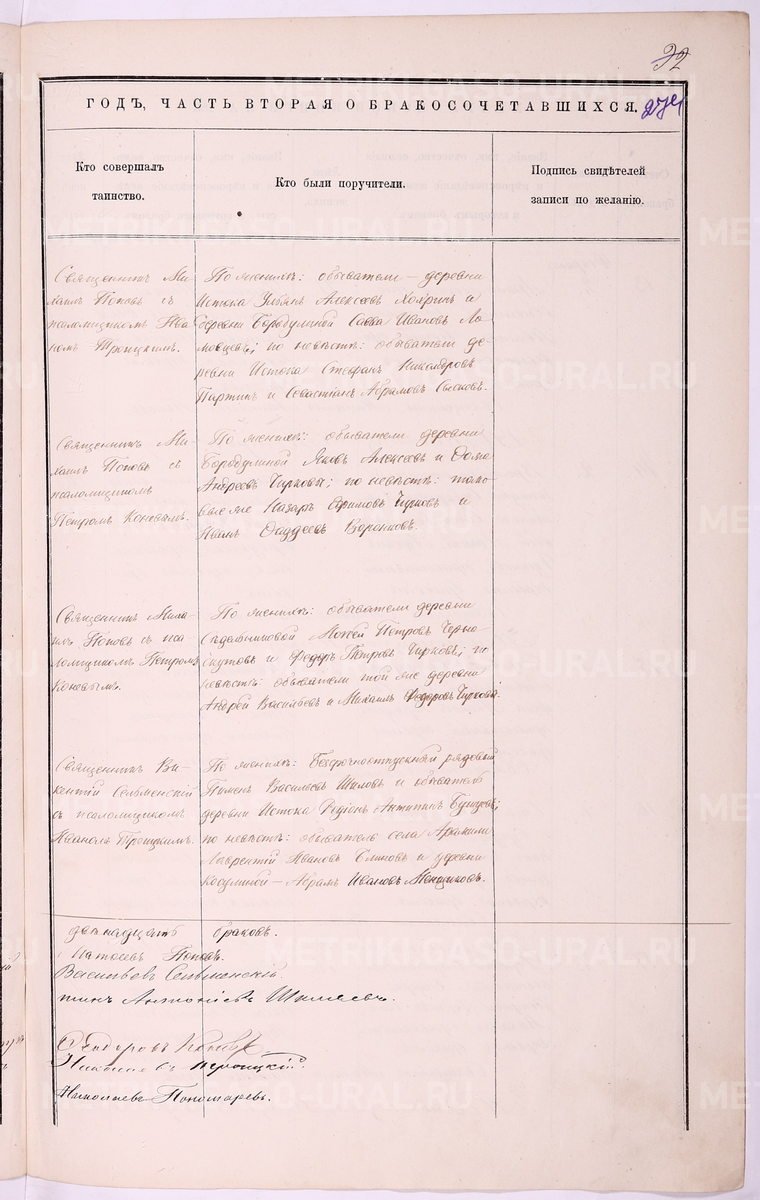 32
274
ГОДЪ, ЧАСТЬ ВТОРАЯ О БРАКОСОЧЕТАВШИХСЯ.
Кто совершалъ
таинство.
Кто были поручители.
Подпись свидѣтелей
записи по желанію.
Священникъ Ми-
хаилъ Поповъ съ
псаломщикомъ Ива
номъ Троицкимъ.
По женихѣ: обыватели — деревни
Истока Ульянъ Алексѣевъ и
деревни Бородулиной Савва Ивановъ
по невѣстѣ: обыватели де-
ревни Истока Стефанъ Никандровъ
Партинъ и Севастіянъ Абрамовъ
Священникъ Ми-
хаилъ Поповъ съ
псаломщикомъ
Петромъ Коневымъ.
По женихѣ: обыватели деревни
Бородулиной Яковъ Алексѣевъ и Ѳома
Андреевъ Чирковы; по невѣстѣ: тако-
вые же Назаръ Ефимовъ Чирковъ и
Иванъ Ѳаддеевъ Воронковъ.
Священникъ Миха-
илъ Поповъ съ пса-
ломщикомъ Петромъ
Коневымъ.
По женихѣ: обыватели деревни
Мокей Петровъ Черно-
скутовъ и Ѳедоръ Петровъ Чирковъ; по
невѣстѣ: обыватели той же деревни
Андрей Васильевъ и Михаилъ Ѳедоровъ Чирковы.
Священникъ Ви-
кентій Сельменскій
съ псаломщикомъ
Иваномъ Троицкимъ.
По женихѣ: Безсрочноотпускный рядовый
Пименъ Васильевъ Шиловъ и обыватель
деревни Истока Родіонъ Антипинъ
по невѣстѣ: обыватель села Арамили
Лаврентій Ивановъ и деревни
Косулиной — Абрамъ Ивановъ Менщиковъ.
двенадцать браковъ.
Матѳеевъ Поповъ.
Васильевъ Сельменскій.
тинъ Антоніевъ
Ѳеодоровъ
Троицкій.
Николаевъ Пономаревъ.
METRIKI.GASO-URAL.RU